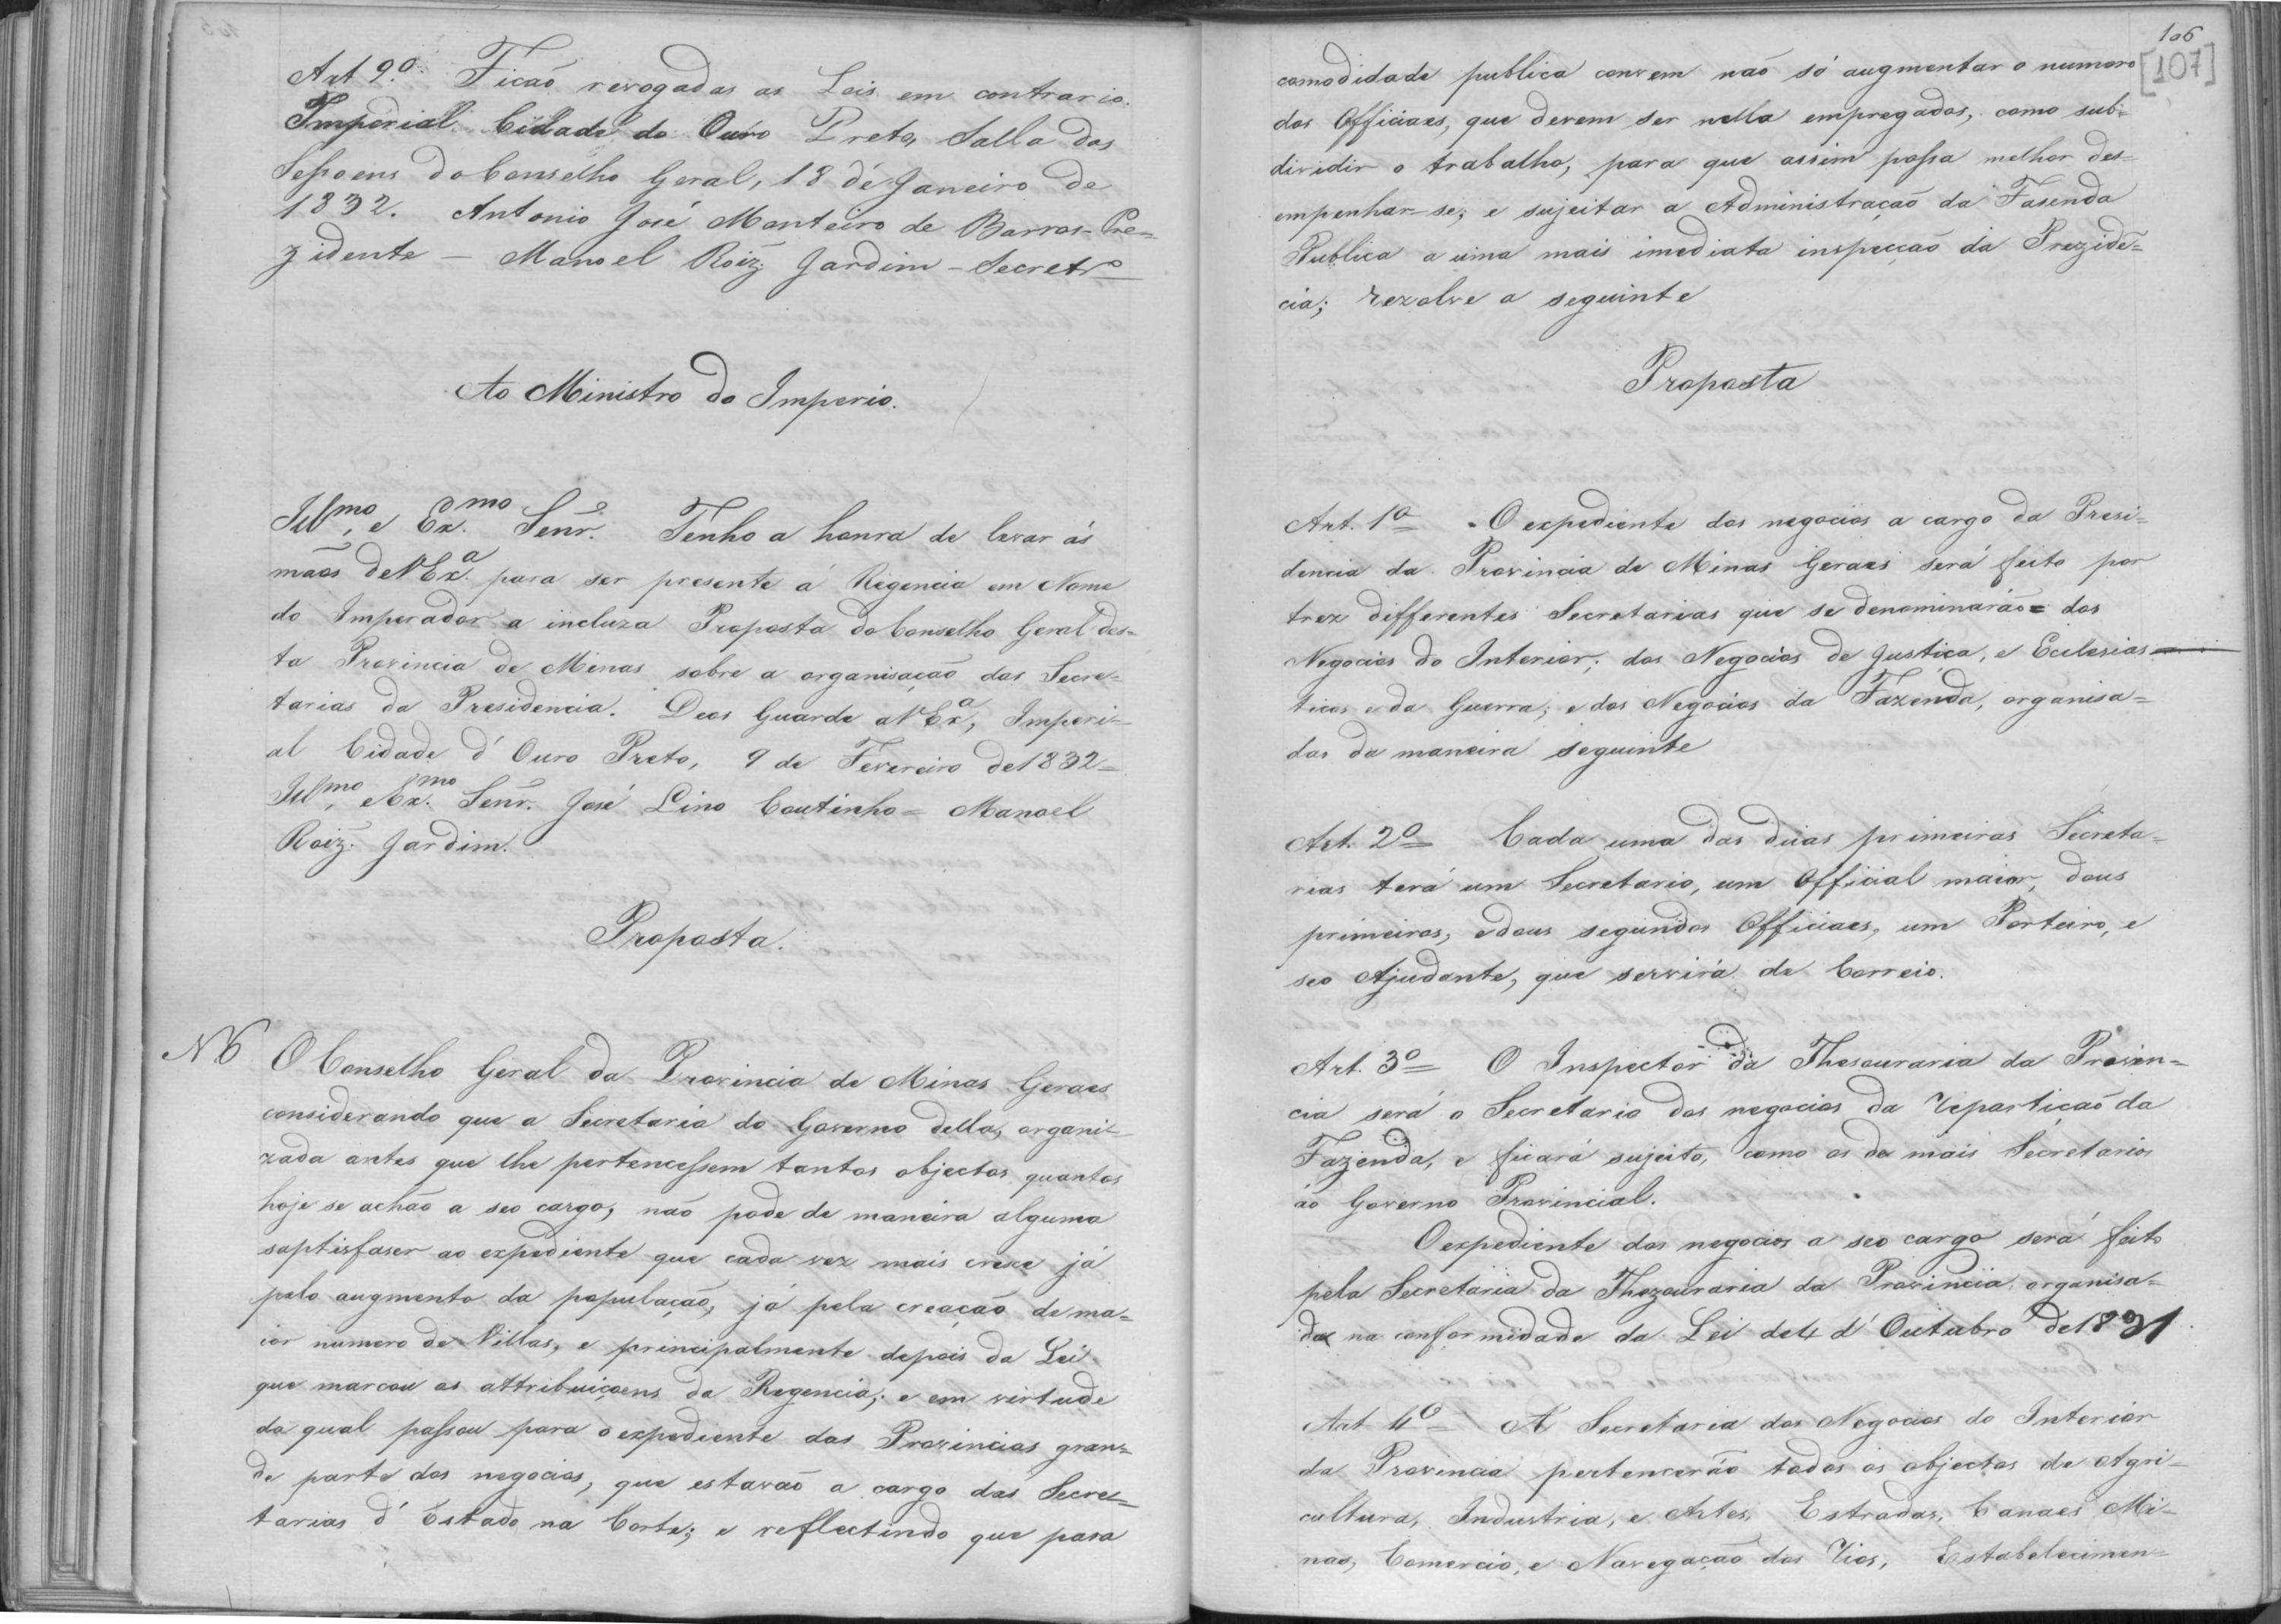 Art 9.º Ficaõ revogadas as Leis em contrario.
Imperial Cidade do Ouro Preto, Salla das
Seſsoens do Conselho Geral, 18 de Janeiro de
1832. Antonio José Monteiro de Barros - Pre=
zidente - Manoel Roiz Jardim - Secretrº
Ao Ministro do Imperio.
Illmo, e Ex.mo Senr. Tenho a honra de levar ás
mãos de V Exª. para ser presente á Regencia em Nome
do Imperador a incluza Proposta do Conselho Geral des=
ta Provincia de Minas sobre a organisaçaõ das Secre=
tarias da Presidencia. Deos Guarde a V Exª, Imperi=
al Cidade d' Ouro Preto, 9 de Fevereiro de 1832 =
Illmo, e Ex.mo Senr. José Lino Coutinho = Manoel
Roiz. Jardim.
Proposta.
N 6 O Conselho Geral da Provincia de Minas Geraes
considerando que a Secretaria do Governo della, organi=
zada antes que lhe pertenceſsem tantos objectos quantos
hoje se achão a seo cargo, não pode de maneira alguma
saptisfaser ao expediente que cada vez mais crece já
pelo augmento da população, já pela creação de ma=
ior numero de Villas, e principalmente depois da Lei
que marcou as attribuiçoens da Regencia; e em virtude
da qual paſsou para o expediente das Provincias gran=
de parte dos negocios, que estavaõ a cargo das Secre=
tarias d' Estado na Corte; e reflectindo que para
106
[107]
comodidade publica convem não só augmentar o numero
dos Officiaes, que devem ser nella empregados, como sub=
dividir o trabalho, para que assim poſsa melhor des=
empenhar-se; e sujeitar a Administraçaõ da Fasenda
Publica a uma mais imediata inspecçaõ da Prezidẽ=
cia; rezolve a seguinte
Proposta
Art. 1º O expediente dos negocios a cargo da Presi=
dencia da Provincia de Minas Geraes será feito por
trez differentes Secretarias que se denominarão = dos
Negocios do Interior; dos Negocios de Justica, e Eclesias
ticos e da Guerra; e dos Negocios da Fazenda, organisa=
das da maneira seguinte
Art. 2º Cada uma das duas primeiras Secreta=
rias terá um Secretario, um Official maior, dous
primeiros, e dous segundos Officiaes, um Porteiro, e
seo Ajudante, que servirá de Correio.
Art. 3º O Inspector da Thesouraria da Provin=
cia será o Secretario dos negocios da repartiçaõ da
Fazenda, e ficará sujeito, como os de mais Secretarios
ao Governo Provincial.
O expediente dos negocios a seo cargo será feito
pela Secretaria da Thezouraria da Provincia organisa=
da na conformidade da Lei de 4 d' Outubro de 1831
Art 4º A Secretaria dos Negocios do Interior
da Provincia pertencerão todos os objectos de Agri=
cultura, Industria, e Artes, Estradas, Canaes Mi=
nas, Comercio, e Navegação dos rios, Estabelecimen=